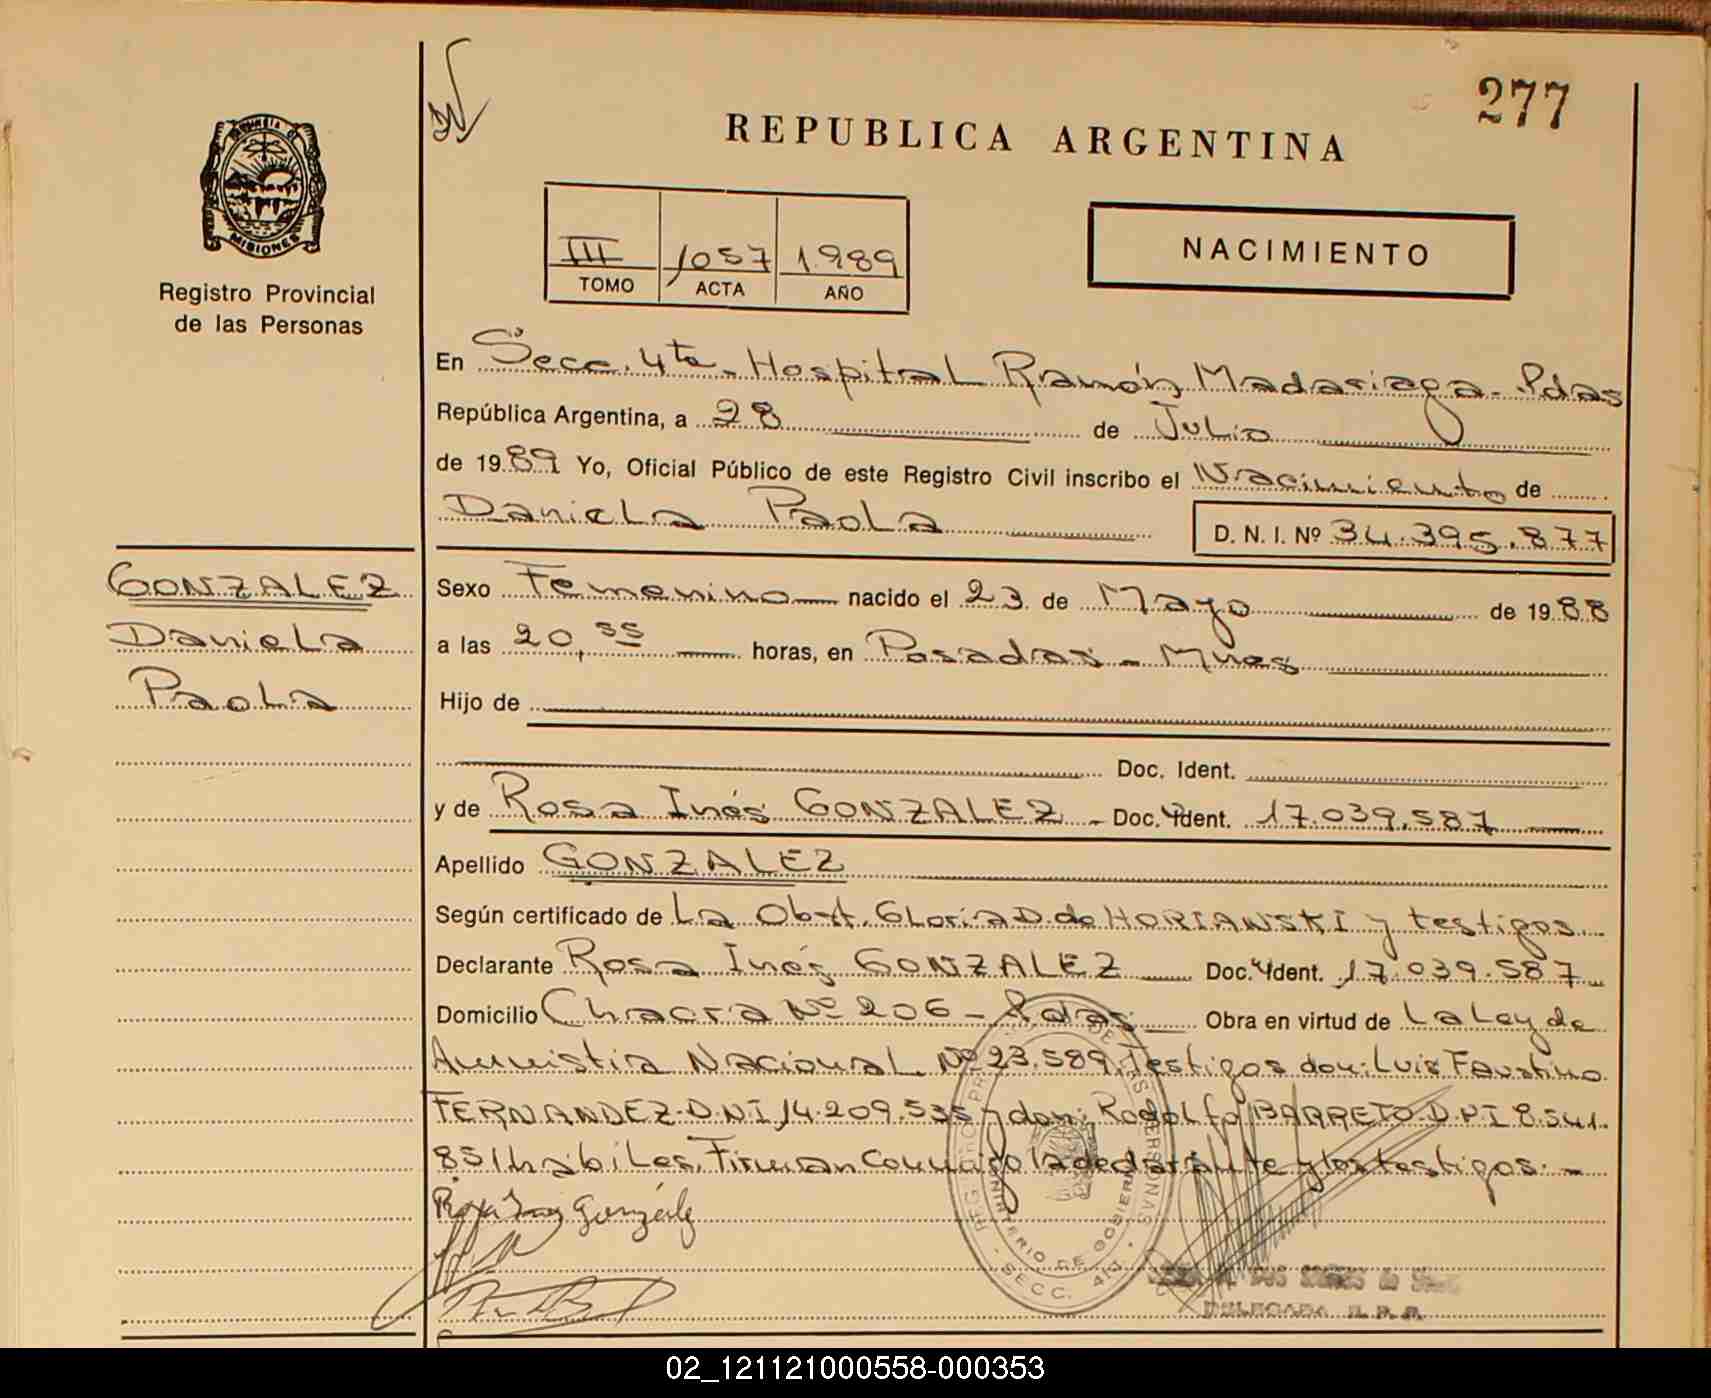 277
REPUBLICA ARGENTINA
PROVINCIA DE
MISIONES
Registro Provincial
de las Personas
III 1057 1.989
TOMO ACTA AÑO
NACIMIENTO
En Secc. 4ta. Hospital Ramón Madariaga. Pdas
República Argentina, a 28 de Julio
de 1989 Yo, Oficial Público de este Registro Civil inscribo el Nacimiento de
Daniela Paola D. N. I. Nº 34.395.877
GONZALEZ
Daniela
Paola
Sexo Femenino nacido el 23 de Mayo de 1988
a las 20,55 horas, en Posadas - Mnes
Hijo de
Doc. Ident.
y de Rosa Inés GONZALEZ - Doc. Ident. 17.039.587
Apellido GONZALEZ
Según certificado de La Obst. Gloria D. de HORIANSKI y testigos.
Declarante Rosa Inés GONZALEZ Doc. Ident. 17.039.587
Domicilio Chacra Nº 206 - Pdas Obra en virtud de La Ley de
Amnistia Nacional Nº 23.589. Testigos don: Luis Faustino
FERNANDEZ. D.N.I 14.209.535 y don: Rodolfo BARRETO. D.N.I 8.541.
851 habiles. Firman conmigo la declarante y los testigos. -
Rosa Ines González
MINISTERIO DE GOBIERNO
SECC. 4ta
DELEGADA R. P. P.
02_121121000558-000353